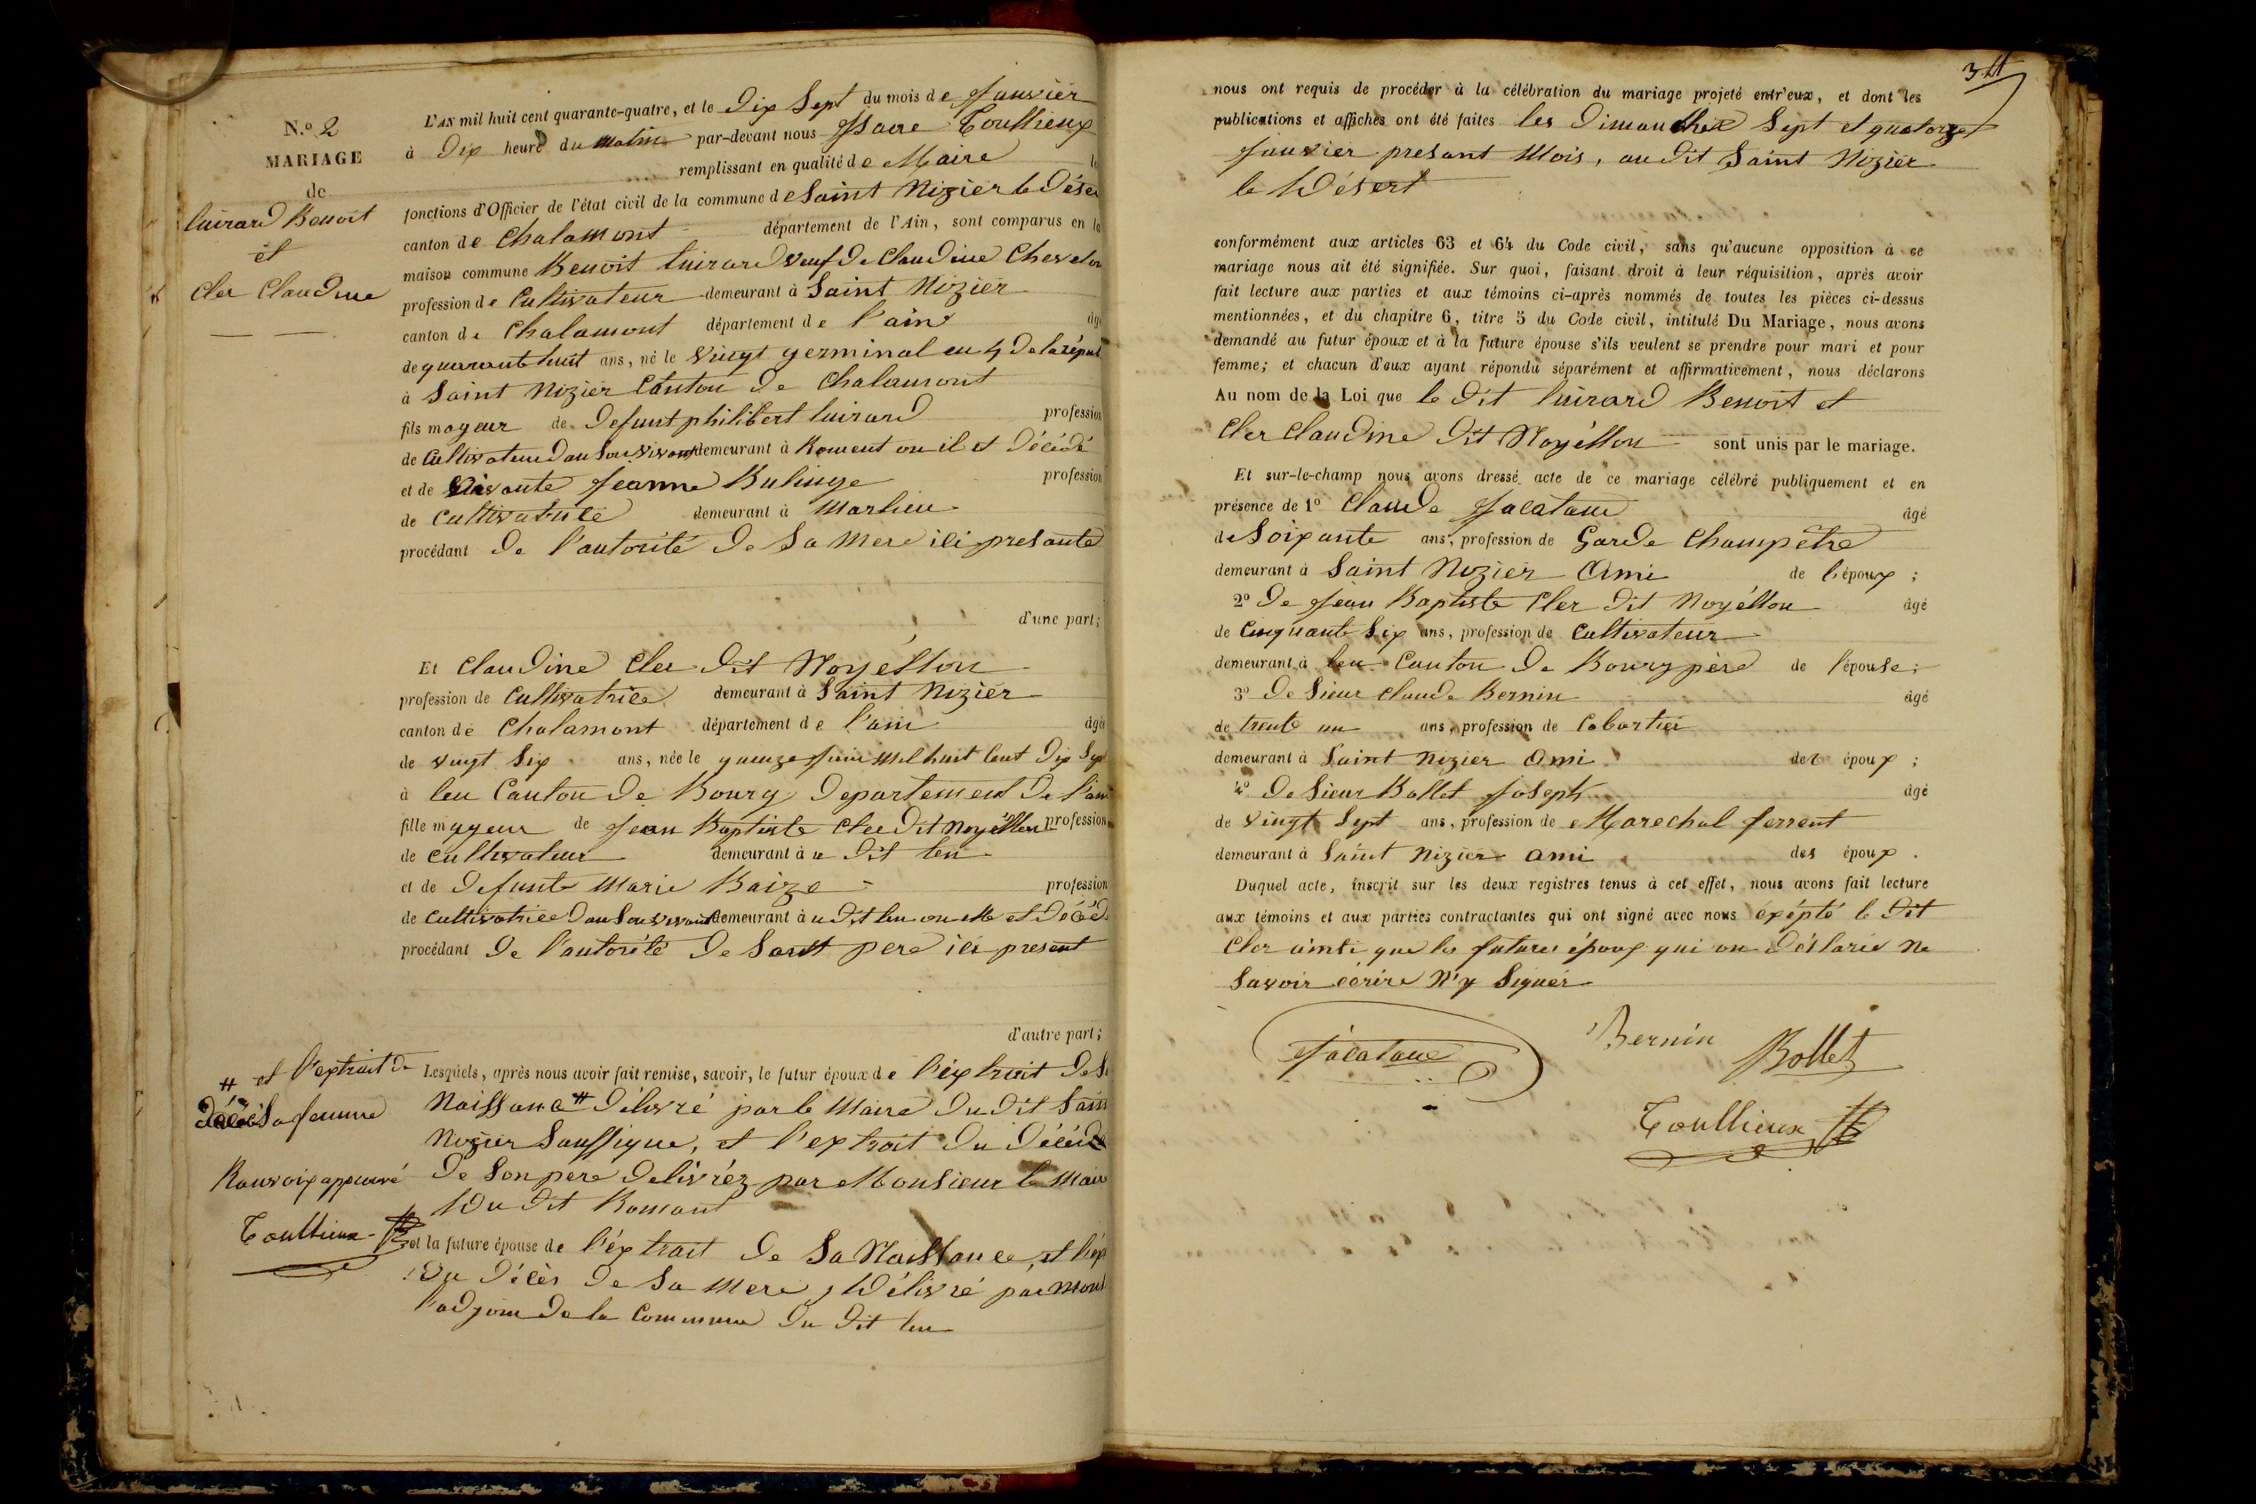 N.º 2
MARIAGE
de
luirard Benoit
et
Cler Claudine
L'AN mil huit cent quarante-quatre, et le dix Sept du mois de Janvier
à dix heure du matin par-devant nous Isaac Toullieux
remplissant en qualité de Maire
fonctions d'Officier de l'état civil de la commune de Saint Nizier le Déser
canton de Chalamont département de l'Ain, sont comparus en la
maison commune Benoit luirard veuf de Claudine Chevelon
profession de Cultivateur demeurant à Saint Nizier
canton de Chalamont département de l'ain âgé
de quarante huit ans, né le vingt germinal en 4 de la répub
à Saint Nizier Canton de Chalamont
fils mageur de defunt philibert luirard profession
de Cultivateur dan Son vivant demeurant à Roment ou il et décédé
et de vivante Jeanne Bulinge profession
de Cultivatrice demeurant à Marlieu
procédant de l'autorité de Sa Mere ici presante
d'une part;
Et Claudine Cler dit Noyéllon
profession de Cultivatrice demeurant à Saint Nizier
canton de Chalamont département de l'ain âgée
de vingt Six ans, née le quinze Juin mil huit Cent dix Sept
à leu Canton de Bourg departement de l'ain
fille mageur de Jean Baptiste Cler dit Noyéllon profession
de Cultivateur demeurant à u dit leu
et de defunte Marie Baize profession
de Cultivatrice dan Son vivant demeurant à u dit leu ou elle et décéd
procédant de l'autorité de Son pere ici present
d'autre part;
# et l'extrait de
décéè Sa femme
Ranvoix appouvé
Toullieux
Lesquels, après nous avoir fait remise, savoir, le futur époux de l'éxtrait de S
Naissance # délivré par le Maire du dit Sain
Nizier Soussigne, et l'extrait du décéd
de Son pere delivréz par Monsieur le Maire
du dit Romant
et la future épouse de l'éxtrait de Sa Naissance, et l'éx
du décès de Sa Mere, délivré par Mons
l'adjoin de la Commune du dit leu
34
nous ont requis de procéder à la célébration du mariage projeté entr'eux, et dont les
publications et affiches ont été faites les dimanches Sept et quatorze
Janvier presant Mois, au dit Saint Nizier
le Désert
conformément aux articles 63 et 64 du Code civil, sans qu'aucune opposition à ce
mariage nous ait été signifiée. Sur quoi, faisant droit à leur réquisition, après avoir
fait lecture aux parties et aux témoins ci-après nommés de toutes les pièces ci-dessus
mentionnées, et du chapitre 6, titre 5 du Code civil, intitulé Du Mariage, nous avons
demandé au futur époux et à la future épouse s'ils veulent se prendre pour mari et pour
femme; et chacun d'eux ayant répondu séparément et affirmativement, nous déclarons
Au nom de la Loi que le dit luirard Benoit et
Cler Claudine dit Noyéllon sont unis par le mariage.
Et sur-le-champ nous avons dressé acte de ce mariage célébré publiquement et en
présence de 1º Claude Jacataue âgé
de Soixante ans, profession de Garde Champêtre
demeurant à Saint Nizier Ami de l'époux ;
2º de Jean Baptiste Cler dit Noyéllon âgé
de Cinquante Six ans, profession de Cultivateur
demeurant à leu Canton de Bourg père de l'épouse ;
3º de Sieur Claude Bernin âgé
de trente un ans, profession de Cabartier
demeurant à Saint Nizier Ami des époux ;
4º de Sieur Bollet Joseph âgé
de vingt Sept ans, profession de Marechal ferrent
demeurant à Saint Nizier ami des époux .
Duquel acte, inscrit sur les deux registres tenus à cet effet, nous avons fait lecture
aux témoins et aux parties contractantes qui ont signé avec nous éxépté le dit
Cler ainsi que les futures époux qui on déslarés ne
Savoir écrire N'y Signér
Jacataue
Bernin
Bollet
Toullieux